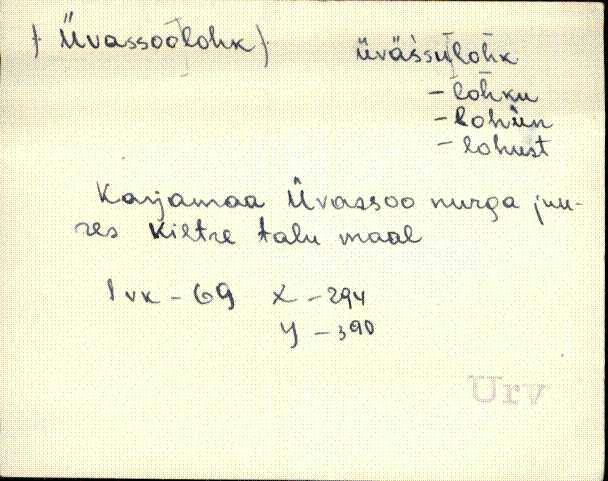 (Üvassoolohk) üvässu|lohk
- lohku
- lohun
- lohust
Karjamaa Üvassoo nurga juu-
res Kiltre talu maal
Ivk - 69 X - 294
Y - 390
Urv